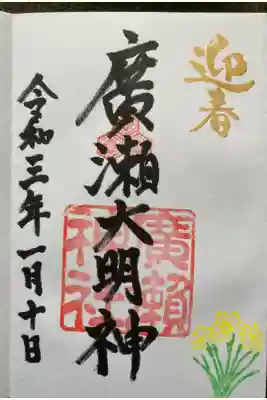 迎春
廣瀬大明神
令和三年一月十日
廣瀬神社